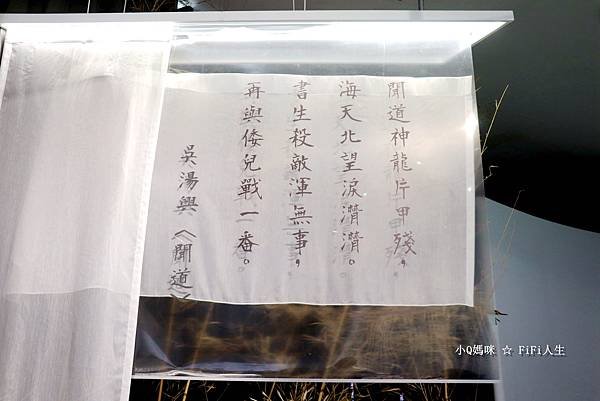 聞道神龍片甲殘，
海天北望淚潸潸。
書生殺敵渾無事，
再與倭兒戰一番。
吳湯興《聞道》
小Q媽咪 ☆ FiFi人生